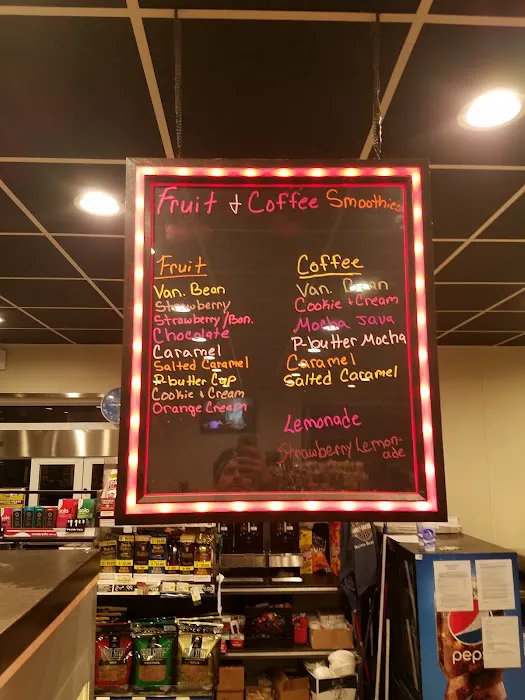 Fruit + Coffee Smoothies
Fruit
Van. Bean
Strawberry
Strawberry/Ban.
Chocolate
Caramel
Salted Caramel
P-butter Cup
Cookie + Cream
Orange Cream
Coffee
Van. Bean
Cookie + Cream
Mocha Java
P-butter Mocha
Caramel
Salted Caramel
Lemonade
Strawberry Lemon-
ade
pepsi